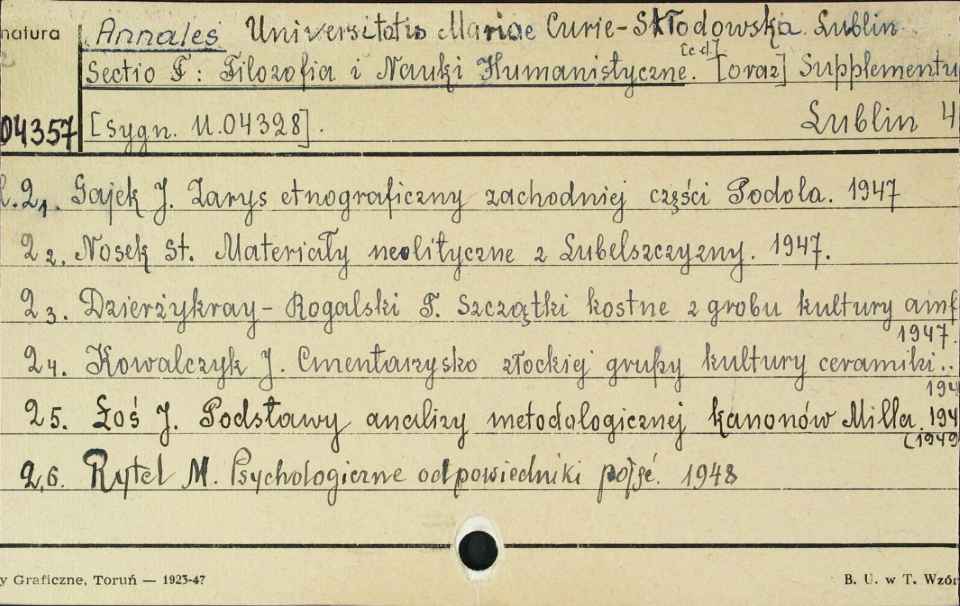 natura Annales Universitatis Mariae Curie-Skłodowska. Lublin.
[c.d.]
Sectio F: Filozofia i Nauki Humanistyczne. [oraz] Supplementu
04357 [sygn. U.04328]. Lublin 4
2,1. Gajek J. Zarys etnograficzny zachodniej części Podola. 1947
2 2. Nosek St. Materiały neolityczne z Lubelszczyzny. 1947.
2 3. Dzierżykray-Rogalski T. Szczątki kostne z grobu kultury amf
1947.
2 4. Kowalczyk J. Cmentarzysko złockiej grupy kultury ceramiki..
194
2 5. Łoś J. Podstawy analizy metodologicznej kanonów Milla. 194
(1949
2,6. Rytel M. Psychologiczne odpowiedniki pojęć. 1948
y Graficzne, Toruń — 1923-47 B. U. w T. Wzór